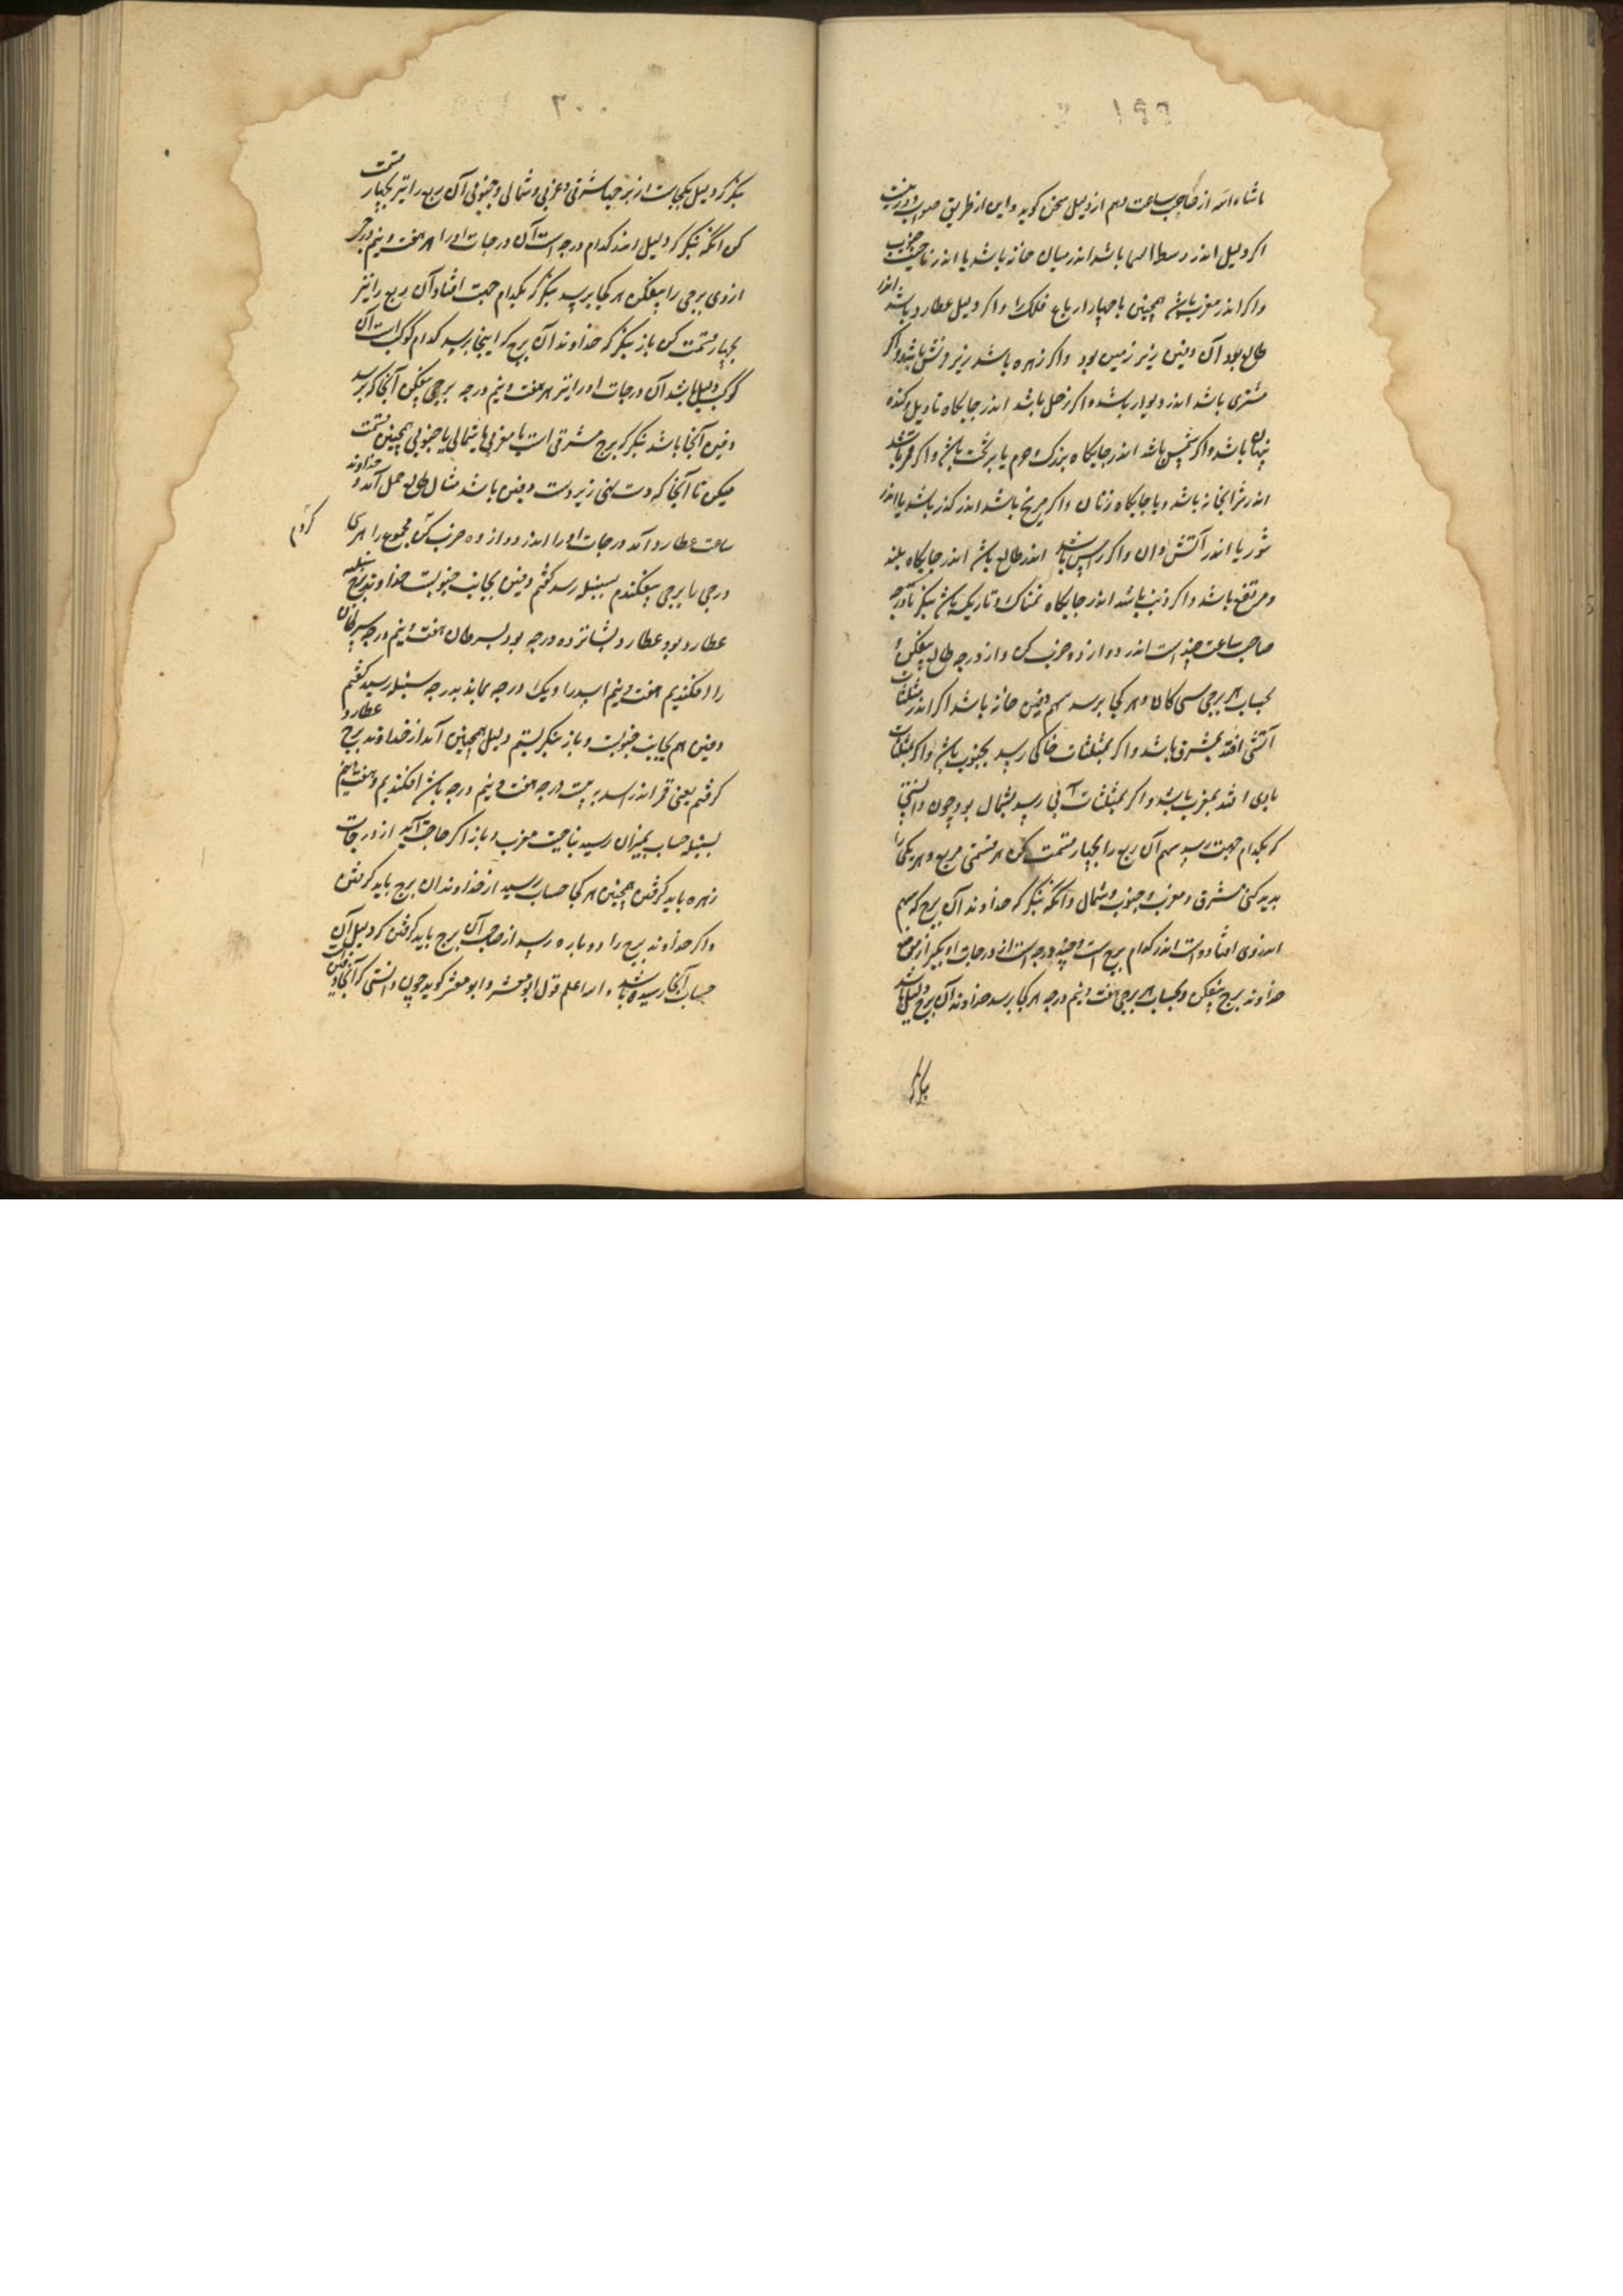 ۱۹۹
ماشاء الله از صاحب ساعت وهم از دلیل سخن کوید و این از طریق صواب
اکر دلیل اندر وسط السما باشد اندر میان خانه باشد یا اندر ناحیت جنوب
واکر اندر مغرب باشد همچنین با چهار ارباع فلک را واکر دلیل عطارد باشد اندر
طالع بود آن دفین زیر زمین بود واکر زهره باشد زیر فرش باشد واکر
مشتری باشد اندر دیوار باشد واکر زحل باشد اندر جایکاه تاریک وکنده
پنهان باشد واکر شمس باشد اندر جایکاه بزرک یا بر تخت باشد واکر قمر باشد
اندر شرابخانه باشد ویا جایکاه زنان واکر مریخ باشد اندر کذر باشد یا اندر
تنور یا اندر آتش دان واکر راس باشد اندر طالع باشد اندر جایکاه بلند
ومرتفع باشد واکر ذنب باشد اندر جایکاه نمناک وتاریک باشد بنکر تا درجه
صاحب ساعت چند است اندر دوازده ضرب کن واز درجه طالع بیفکن
بحساب هر برجی سی کان وهر کجا برسد سهم دفین خانه باشد اکر اندر مثلثات
آتشی افتد بمشرق باشد واکر بمثلثات خاکی رسد بجنوب باشد واکر بمثلثات
بادی افتد بمغرب باشد واکر بمثلثات آبی رسد بشمال بود چون دانستی
که بکدام جهت رسید سهم آن ربع را بچهار قسمت کن هر قسمتی مربع وهر یکی را
پدید کنی مشرق ومغرب وجنوب وشمال وآنکه بنکر که خداوند آن برج که سهم
اندروی افتاده است اندر کدام برج است وچند درجه است از درجات او بکیر از موضع
خداوند برج بیفکن وبحساب هر برجی هفت ونیم درجه هر کجا برسد خداوند آن برج دلیل باشد
۲۰۰
بنکر که دلیل بکجاست از برجها شرقی وغربی وشمالی وجنوبی آن ربع را نیز بچهار قسمت
کن آنکه بنکر که دلیل اندر کدام درجه است آن درجات او را هر هفت ونیم درجه
از وی برجی را بیفکن هر کجا برسد بنکر که بکدام جهت افتاد آن ربع را نیز
بچهار قسمت کن باز بنکر که خداوند آن برج که اینجا رسید کدام کوکب است آن
کوکب دلیل باشد آن درجات او را نیز هر هفت ونیم درجه برجی بیفکن آنجا که برسد
دفین آنجا باشد بنکر که برج مشرقی است یا مغربی یا شمالی یا جنوبی همچنین قسمت
میکن تا آنجا که دست نهی زیر دست دفین باشد مثال طالع حمل آمد و خداوند
ساعت عطارد آمد درجات او را اندر دوازده ضرب کن مجموع را هر سی
کردیم
درجی را برجی بیفکندم بسنبله رسید کفتم دفین بجانب جنوبست خداوند برج سنبله
عطارد بود عطارد بشانزده درجه بود بسرطان هفت ونیم درجه سرطان
را افکندیم هفت ونیم اسد را ویک درجه بماند بدرجه سنبله رسید کفتم
دفین هم بجانب جنوبست وباز بنکریستم دلیل همچنین آمد از خداوند برج عطارد
کرفتم یعنی قمر اندر اسد به بیست درجه هفت ونیم درجه باسد افکندیم وهفت ونیم
بسنبله حساب بمیزان رسید بناحیت مغرب وباز اکر حاجت آید از درجات
زهره باید کرفتن همچنین هر کجا حساب رسید از خداوند آن برج باید کرفتن
واکر خداوند برج را دوباره رسد از صاحب آن برج باید کرفتن که دلیل آن
حساب آنجا رسیده باشد والله اعلم قول ابو معشر وابو معشر کوید چون دانستی که آنجا دفین